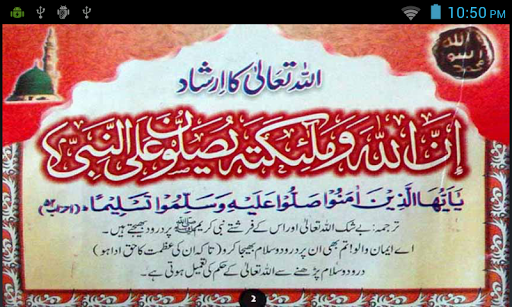 10:50 PM
اللہ تعالیٰ کا ارشاد
إِنَّ اللهَ وَمَلٰئِكَتَهٗ يُصَلُّوْنَ عَلَى النَّبِيِّ
يٰاَيُّهَا الَّذِيْنَ اٰمَنُوْا صَلُّوْا عَلَيْهِ وَسَلِّمُوْا تَسْلِيْمًا ○ (احزاب
ترجمہ: بے شک اللہ تعالیٰ اور اس کے فرشتے نبی کریم ﷺ پر درود بھیجتے ہیں۔
اے ایمان والو! تم بھی ان پر درود و سلام بھیجا کرو (تاکہ ان کی عظمت کا حق ادا ہو)
درود و سلام پڑھنے سے اللہ تعالیٰ کے حکم کی تعمیل ہوتی ہے۔
2